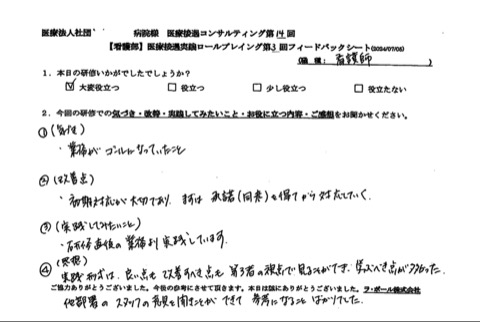 医療法人社団 病院様 医療接遇コンサルティング第14回
【看護部】医療接遇実践ロールプレイング第3回フィードバックシート(2024/07/05)
(職種: 看護師 )
1. 本日の研修いかがでしたでしょうか?
☑ 大変役立つ □ 役立つ □ 少し役立つ □ 役立たない
2. 今回の研修での気づき・改善・実践してみたいこと・お役に立つ内容・ご感想をお聞かせください。
① (気づき)
・業務がゴールになっていたこと
② (改善点)
・初期対応が大切であり、まずは承諾(同意)を得てから対応していく。
③ (実践してみたいこと)
・研修直後の業務より実践しています。
④ (感想)
実践形式は、良い点も改善すべき点も第3者の視点で見ることができ、学ぶべき点が多かった。
ご協力ありがとうございました。今後の参考にさせて頂きます。本日は誠にありがとうございました。ラ・ポール株式会社
他部署のスタッフの意見を聞くことができて参考になることばかりでした。